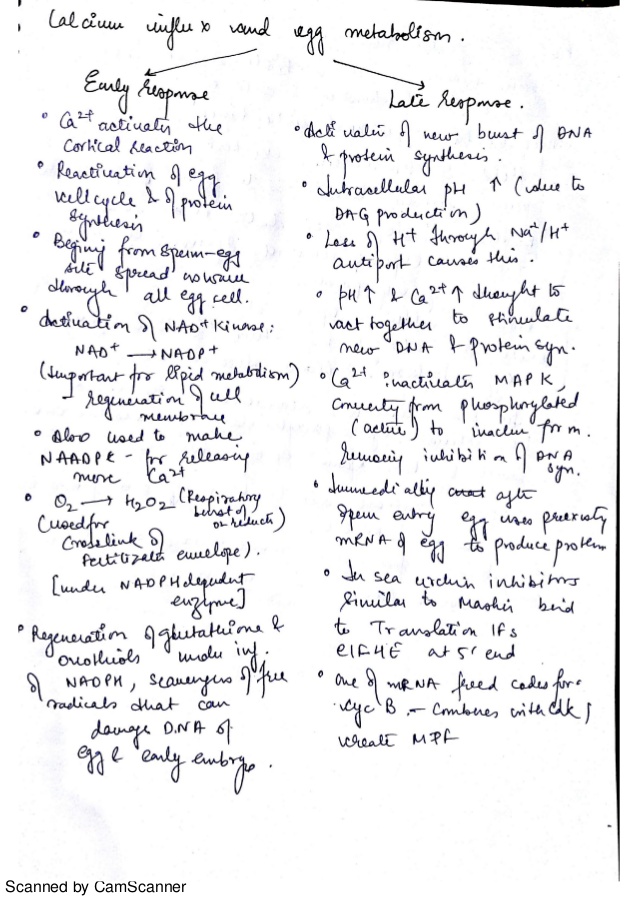 Calcium influx and egg metabolism.
Early Response
• Ca2+ activates the
Cortical Reaction
• Reactivation of egg
cell cycle & of protein
synthesis
• Begining from sperm-egg
site spread as wave
through all egg cell.
• Activation of NAD+ Kinase:
NAD+ → NADP+
(Important for lipid metabolism)
→ regeneration of cell
membrane
• Also used to make
NAADPK - for releasing
more Ca2+
• O2 → H2O2 (Respiratory
burst of
or reducts)
(used for
Crosslink of
fertilizatn envelope).
[under NADPH dependent
enzyme]
• Regeneration of glutathione &
ovothiols under inf.
of NADPH, scavengers of free
radicals that can
damage DNA of
egg & early embryo.
Late Response.
• Activatn of new burst of DNA
& protein synthesis.
• Intracellular pH ↑ (due to
DAG production)
• Loss of H+ through Na+/H+
antiport causes this.
• pH ↑ & Ca2+ ↑ thought to
act together to stimulate
new DNA & protein syn.
• Ca2+ inactivates MAPK,
converts from phosphorylated
(active) to inactive form.
Removing inhibition of DNA
syn.
• Immediatly after
sperm entry egg uses preexisty
mRNA of egg to produce protein
• In sea urchin inhibitors
similar to Maskin bind
to Translation IFs
eIF4E at 5' end
• One of mRNA freed codes for
cyc B. - Combines with cdk1
create MPF
Scanned by CamScanner